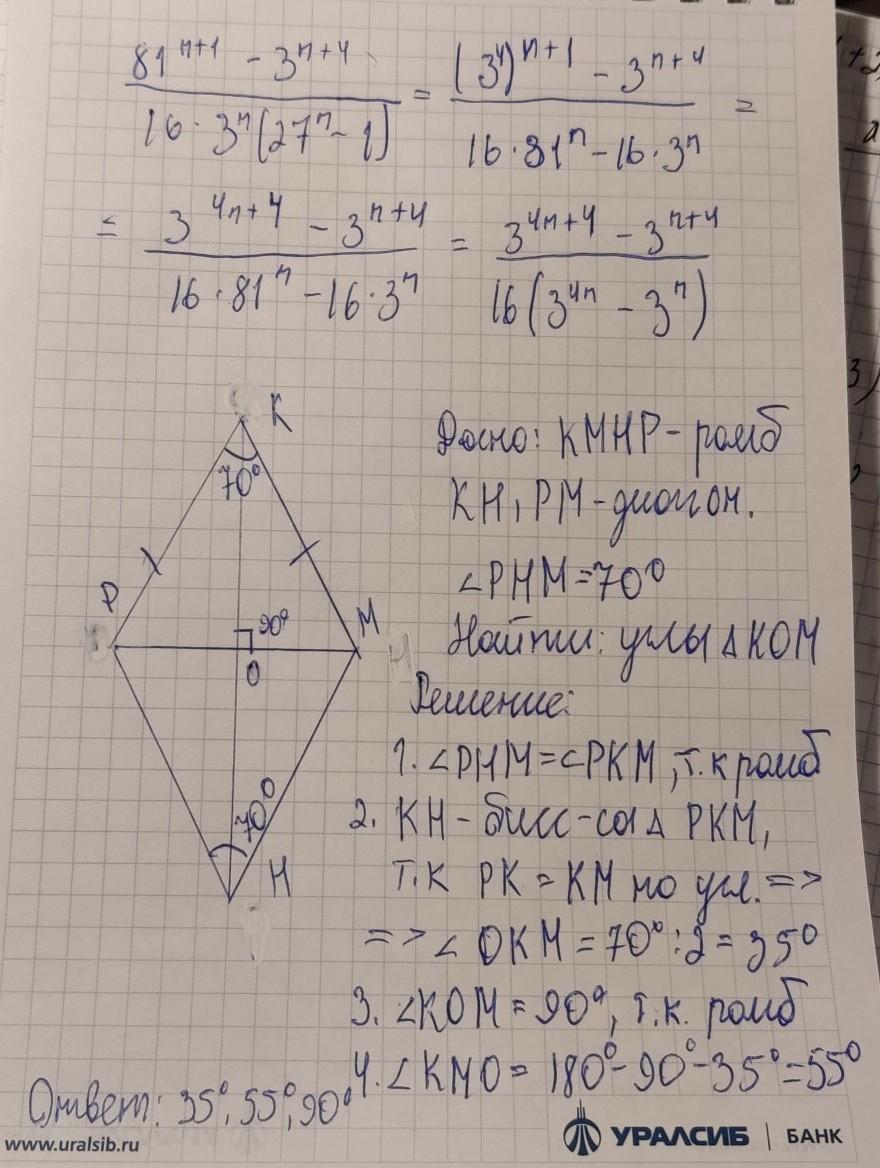 81^{n+1} - 3^{n+4} / 16 · 3^n (27^n - 1) = (3^4)^{n+1} - 3^{n+4} / 16 · 81^n - 16 · 3^n =
= 3^{4n+4} - 3^{n+4} / 16 · 81^n - 16 · 3^n = 3^{4n+4} - 3^{n+4} / 16 (3^{4n} - 3^n)
K
70°
P
90°
M
O
70°
H
Дано: KMHP - ромб
KH, PM - диагон.
∠PHM = 70°
Найти: углы △KOM
Решение:
1. ∠PHM = ∠PKM, т.к ромб
2. KH - бисс-са △ PKM,
т.к PK = KM по усл. =>
=> ∠ OKM = 70° : 2 = 35°
3. ∠KOM = 90°, т.к. ромб
4. ∠KMO = 180° - 90° - 35° = 55°
Ответ: 35°, 55°, 90°
www.uralsib.ru
УРАЛСИБ | БАНК